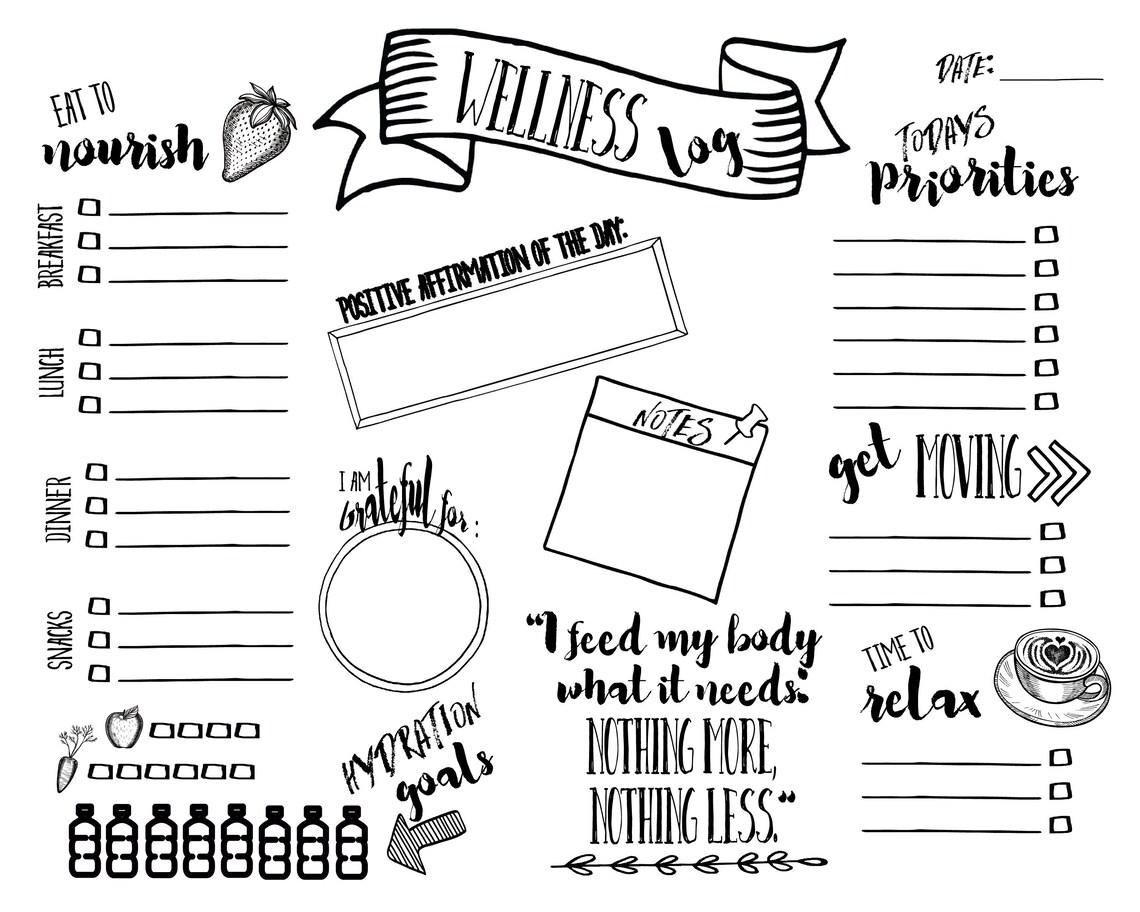 WELLNESS log
DATE:
EAT TO
nourish
BREAKFAST
LUNCH
DINNER
SNACKS
POSITIVE AFFIRMATION OF THE DAY:
I AM
Grateful for:
NOTES
HYDRATION
goals
"I feed my body
what it needs:
NOTHING MORE,
NOTHING LESS."
TODAYS
Priorities
get MOVING
TIME TO
relax